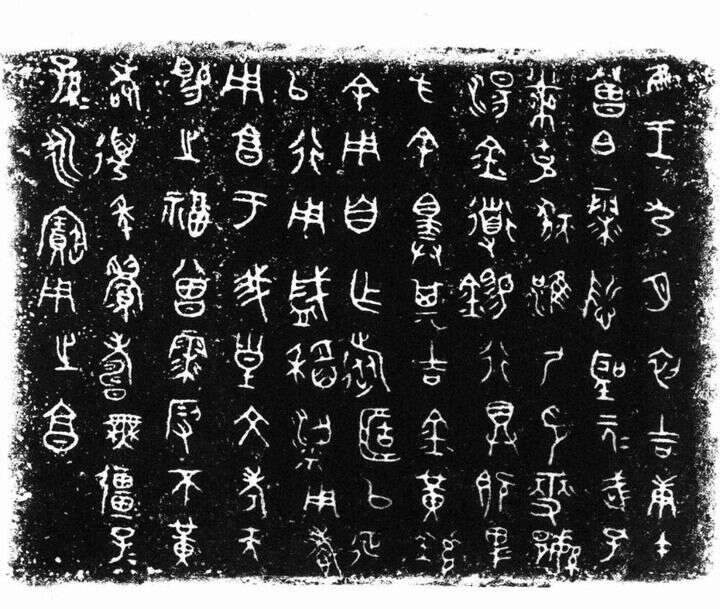 隹王九月初吉庚午
曾白霥悊聖元武孔
黹克狄淮尸印燮繁
湯金道錫行具既卑
方余擇其吉金黃鑢
余用自乍旅匿以征
以行用盛稻粱用孝
用亯于我皇文考天
賜之福曾霥叚不黃
耇邁年眉壽無疆子
孫永寶用之亯